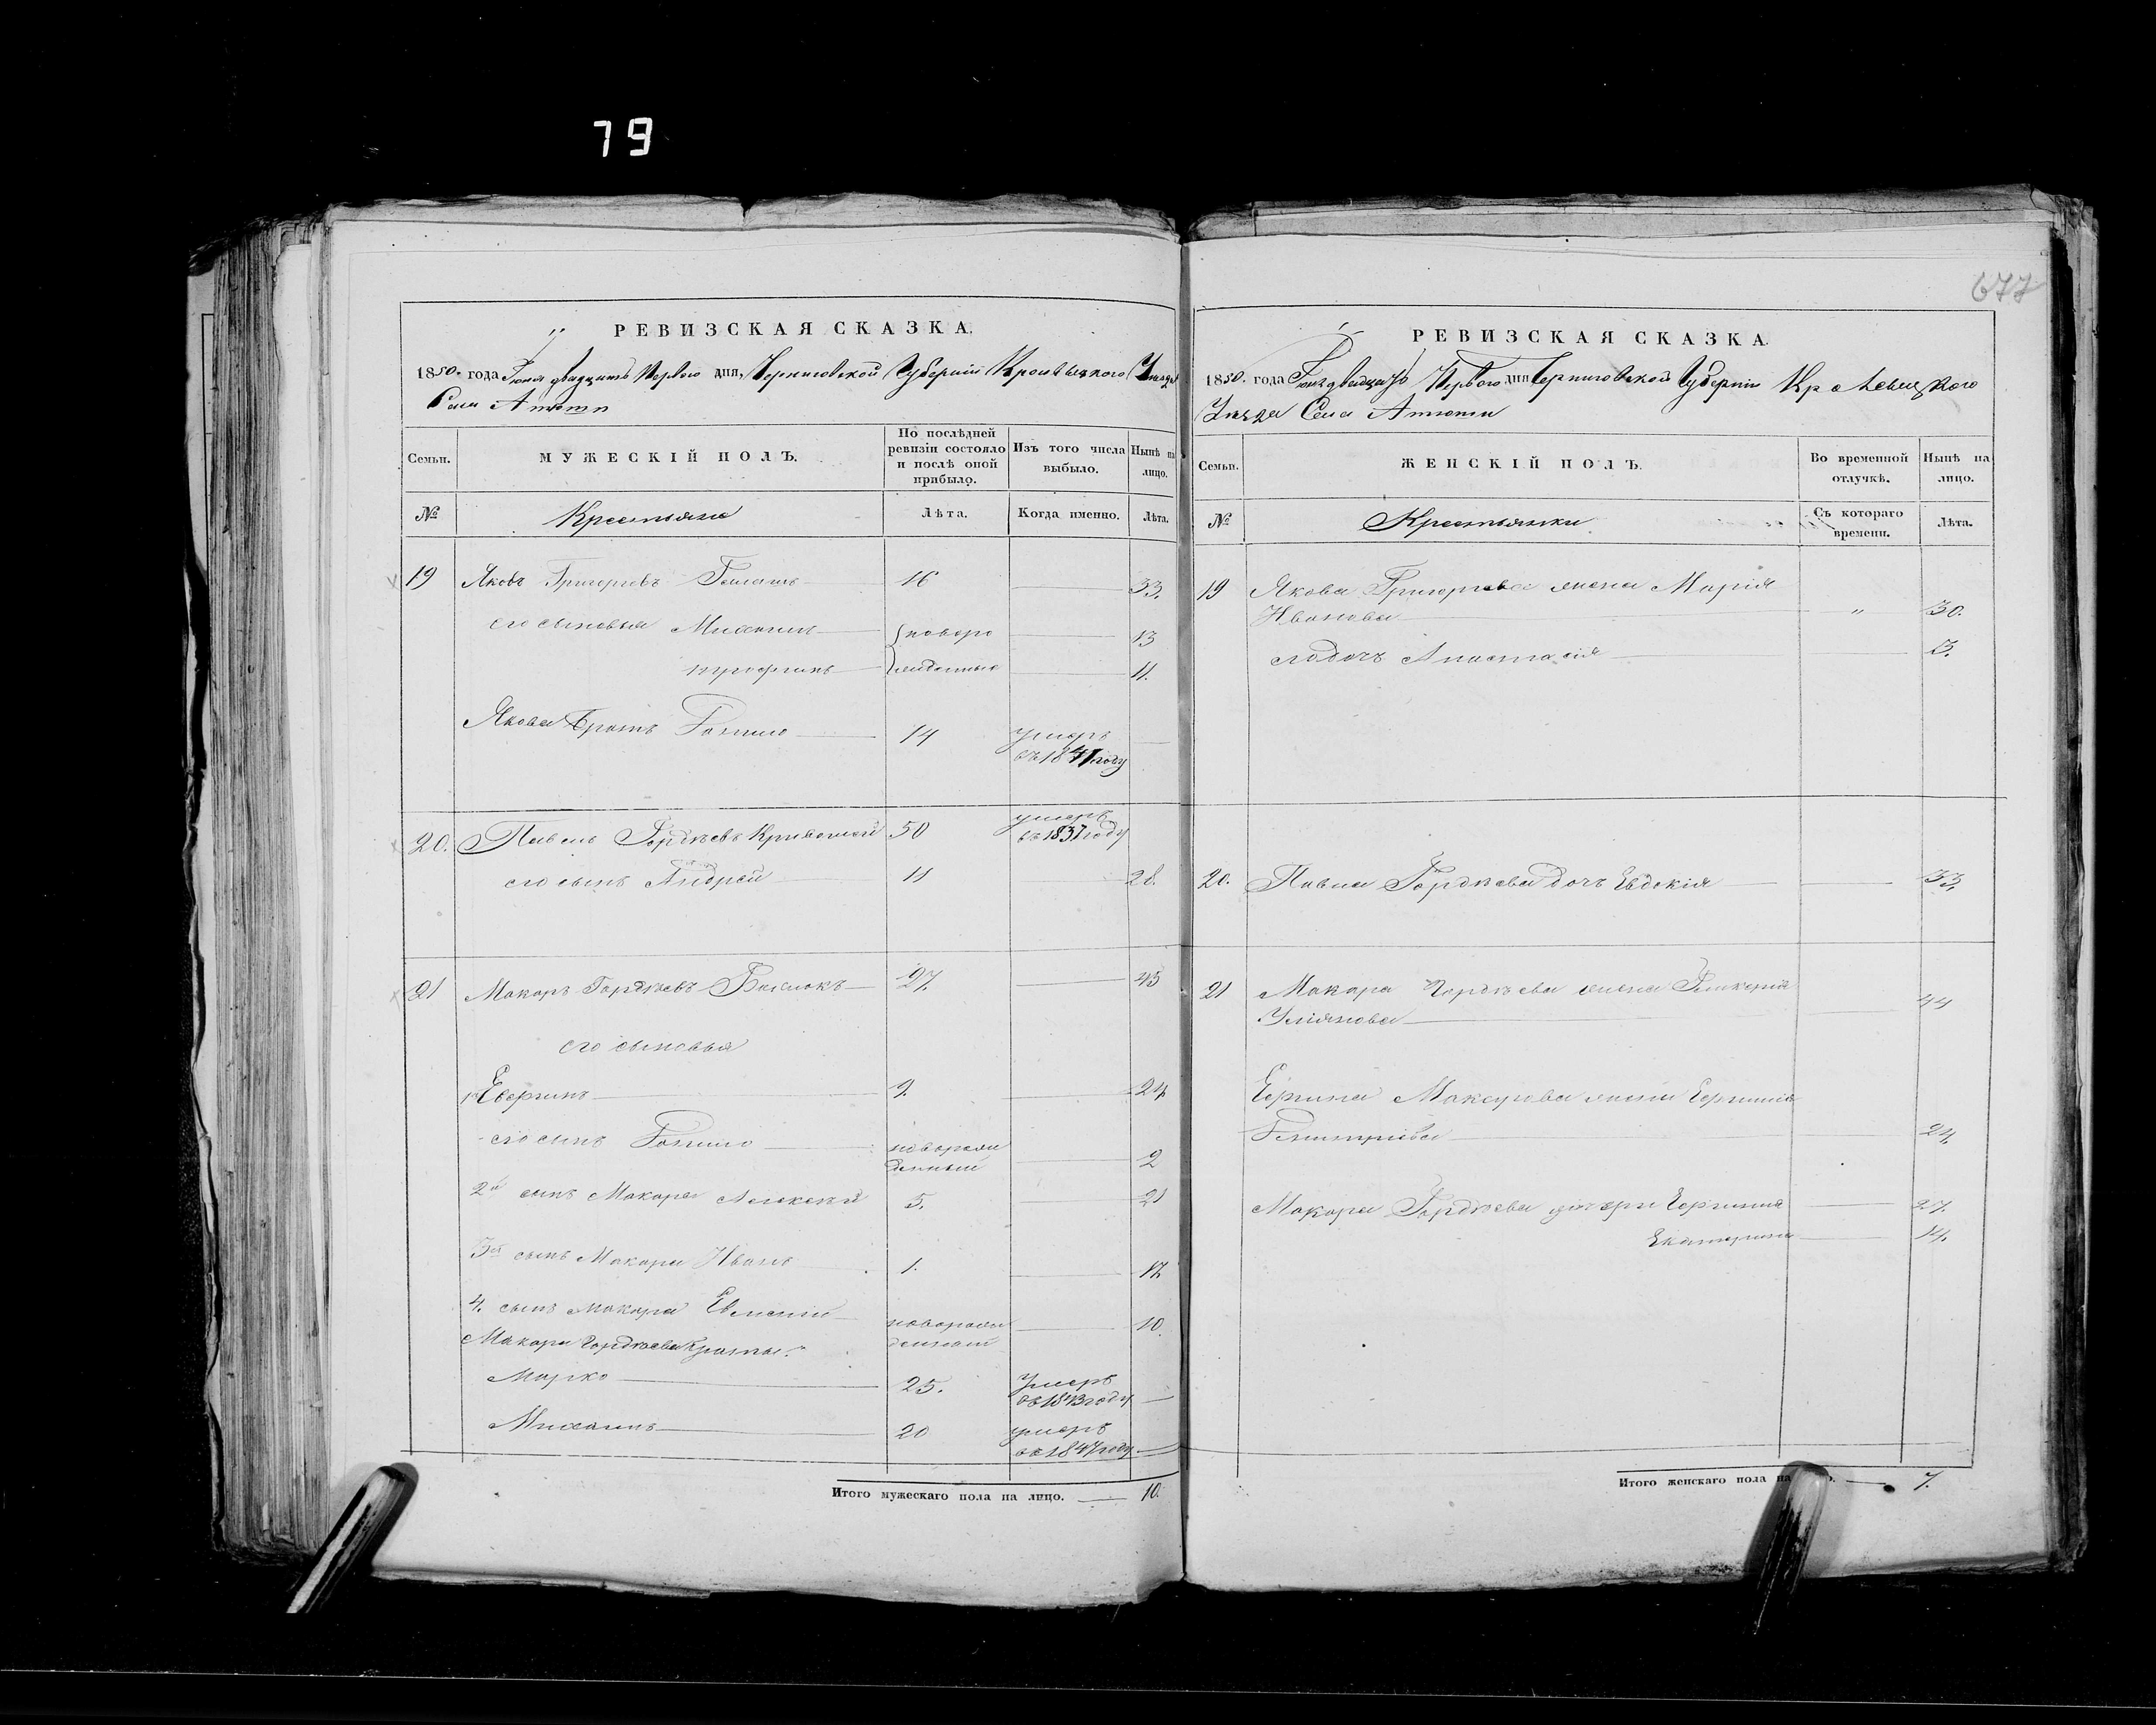 79
677
РЕВИЗСКАЯ СКАЗКА.
1850. года Іюня двадцать Перваго дня, Черниговской Губерніи Кролевецкого Уезда
Села Атюши
Семьи. МУЖЕСКІЙ ПОЛЪ. По послѣдней ревизіи состояло и послѣ оной прибыло. Изъ того числа выбыло. Нынѣ на лицо.
№ Крестьяне Лѣта. Когда именно. Лѣта.
19 Яковъ Григорьевъ 16 33.
его сыновья Михаилъ новоро 13
Трофимъ жденные 11.
Якова братъ 14 умеръ
въ 1841 году
20. Павелъ Гордѣевъ 50 умеръ
въ 1837 году
его сынъ Андрей 11 28.
21 Макаръ Гордѣевъ 27. 45
его сыновья
1й 9. 24
его сынъ новорож
денный 2
2й сынъ Макара Алексѣй 5. 21
3й сынъ Макара Иванъ 1. 17
4. сынъ Макара Евмений новорож 10.
Макара Гордѣева браты: денный
Марко 25. Умеръ
въ 1843 году
Михаилъ 20 умеръ
въ 1847 году
Итого мужескаго пола на лицо. 10.
РЕВИЗСКАЯ СКАЗКА.
1850. года Іюня двадцать Перваго дня Черниговской Губерніи Кролевецкого
Уезда Села Атюши
Семьи. ЖЕНСКІЙ ПОЛЪ. Во временной отлучкѣ. Нынѣ на лицо.
№ Крестьянки Съ котораго времени. Лѣта.
19 Якова Григорьева жена Марія
Иванова " 30.
его дочь Анастасія 3.
20. Павла Гордѣева дочь Евдокія 33.
21 Макара Гордѣева жена Гликерія
44
Макарова жена
24
Макара Гордѣева дочери 27.
Екатерина 14.
Итого женскаго пола на 7.